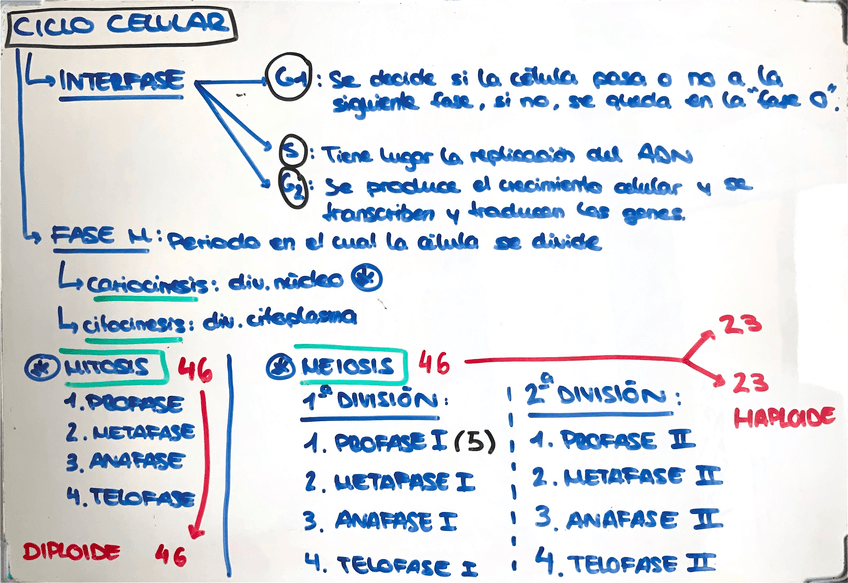 CICLO CELULAR
INTERFASE
G1: Se decide si la célula pasa o no a la
siguiente fase, si no, se queda en la "fase 0".
S: Tiene lugar la replicación del ADN
G2: Se produce el crecimiento celular y se
transcriben y traducen los genes.
FASE M: Periodo en el cual la célula se divide
cariocinesis: div. núcleo *
citocinesis: div. citoplasma
* MITOSIS 46
1. PROFASE
2. METAFASE
3. ANAFASE
4. TELOFASE
DIPLOIDE 46
* MEIOSIS 46
23
23
HAPLOIDE
1ª DIVISIÓN:
1. PROFASE I (5)
2. METAFASE I
3. ANAFASE I
4. TELOFASE I
2ª DIVISIÓN:
1. PROFASE II
2. METAFASE II
3. ANAFASE II
4. TELOFASE II